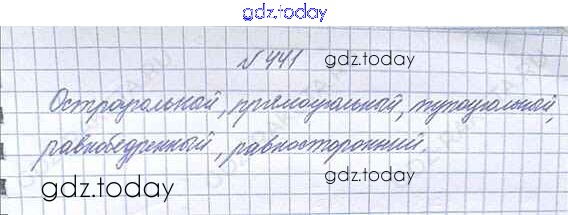 gdz.today
№441 gdz.today
Остроугольной, прямоугольной, тупоугольной,
равнобедренный, равносторонний.
gdz.today
gdz.today